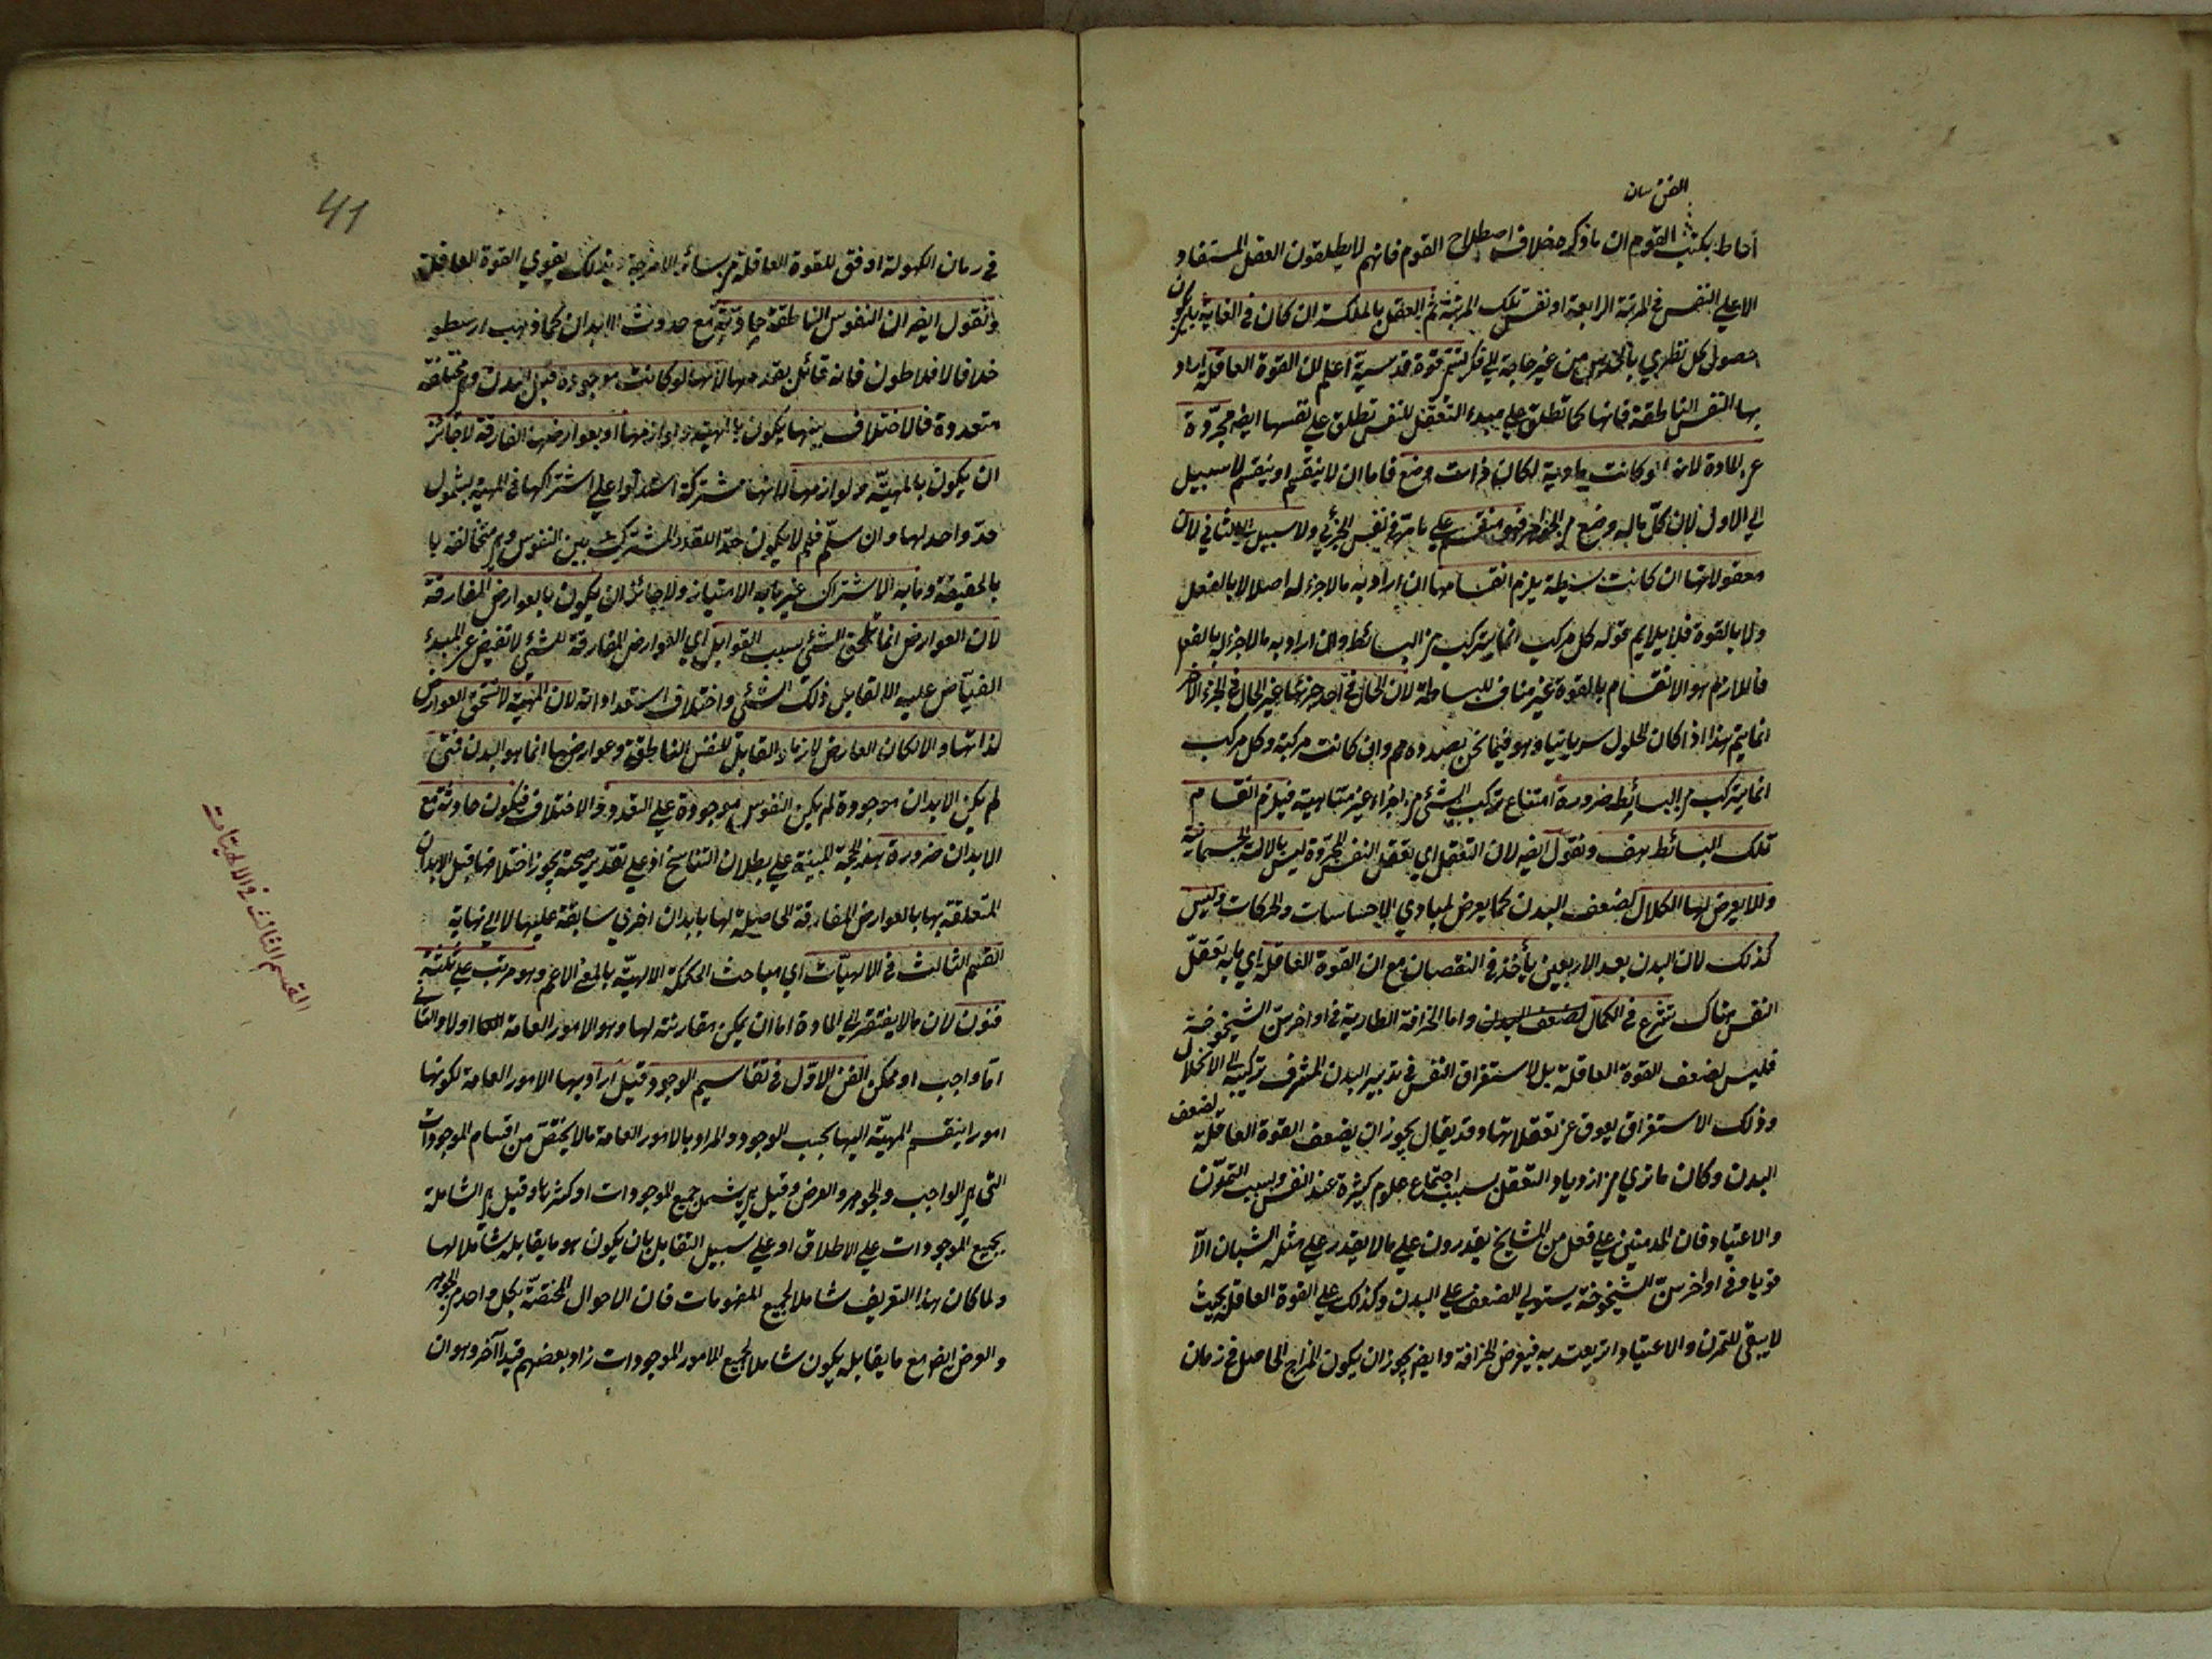 الفن سان
أحاط بكتب القوم ان ما ذكره خلاف اصطلاح القوم فانهم لا يطلقون العقل المستفاد
الا على النفس في المرتبة الرابعة او نفس تلك المرتبة ثم العقل بالملكة ان كان في الغاية بان يكون
حصول كل نظري بالحدس من غير حاجة الى فكر تسمى قوة قدسية اعلم ان القوة العاقلة اراد
بها النفس الناطقة فانها كما تطلق على مبدء التعقل للنفس تطلق على نفسها ايضا مجردة
عن المادة لانها لو كانت مادية لكان ذات وضع فاما ان لا ينقسم او ينقسم لا سبيل
الى الاول لان كل ما له وضع من الجواهر فهو منقسم على ما مر في نفي الجزئي ولا سبيل الى الثاني لان
معقولاتها ان كانت بسيطة يلزم انقسامها ان اراد به ما لا جزء له اصلا لا بالفعل
ولا بالقوة فلا يلايم قوله كل مركب انما يتركب من البسائط وان اراد به ما لا جزء له بالفعل
فاللازم هو الانقسام بالقوة غير مناف للبساطة لان الحال في احد جزئيها غير الحال في الجزء الاخر
انما يتم هذا اذا كان الحلول سريانيا وهو فيما نحن بصدده مم وان كانت مركبة وكل مركب
انما يتركب من البسائط ضرورة امتناع تركب الشئ من اجزاء غير متناهية فيلزم انقسام
تلك البسائط هف ونقول ايضا لان التعقل اي تعقل النفس المجردة ليس بالالة الجسمانية
والا يعرض لها الكلال لضعف البدن كما يعرض لمبادي الاحساسات والحركات وليس
كذلك لان البدن بعد الاربعين يأخذ في النقصان مع ان القوة العاقلة اي ما به تعقل
النفس هناك تشرع في الكمال لضعف البدن واما الخرافة الطارية في اواخر سن الشيخوخة
فليس لضعف القوة العاقلة بل لاستغراق النفس في تدبير البدن المشرف تركيبه الى الانحلال
وذلك الاستغراق يعوق عن تعقلاتها وقد يقال يجوز ان يضعف القوة العاقلة لضعف
البدن وكان ما نرى من ازدياد التعقل بسبب اجتماع علوم كثيرة عند النفس وبسبب التمرن
والاعتياد فان المدمنين على فعل من المشايخ يقدرون على ما لا يقدر على مثله الشبان الا
قويا وفي اواخر سن الشيخوخة يستولي الضعف على البدن وكذلك على القوة العاقلة بحيث
لا يبقى للتمرن والاعتياد اثر يعتد به فيعرض الخرافة وايضا يجوز ان يكون المزاج الحاصل في زمان
41
في زمان الكهولة اوفق للقوة العاقلة من سائر الامزجة فبذلك يقوي القوة العاقلة
ونقول ايضا ان النفوس الناطقة حادثة مع حدوث الابدان كما ذهب ارسطو
خلافا لافلاطون فانه قائل بقدمها لانها لو كانت موجودة قبل البدن وهي مختلفة
متعددة فالاختلاف بينها يكون بالمهية ولوازمها او بعوارضها المفارقة لا جائز
ان يكون بالمهية ولوازمها لانها مشتركة استدلوا على اشتراكها في المهية بشمول
حد واحد لها وان سلم فلم لا يكون حدا للقدر المشترك بين النفوس وهي متخالفة
بالحقيقة وما به الاشتراك غير ما به الامتياز ولا جائز ان يكون بالعوارض المفارقة
لان العوارض انما تلحق الشئ بسبب القوابل اي العوارض المفارقة للشئ لا تفيض عن المبدء
الفياض عليه الا لقابل ذلك الشئ واختلاف استعداداته لان المهية لا تستحق العوارض
لذاتها والا لكان العارض لازما والقابل للنفس الناطقة وعوارضها انما هو البدن فمتى
لم يكن الابدان موجودة لم يكن النفوس موجودة على التعدد والاختلاف فتكون حادثة مع
الابدان ضرورة هذه الحجة المبنية على بطلان التناسخ اذ على تقدير صحته يجوز اختلافها قبل الابدان
المتعلقة بها بالعوارض المفارقة الحاصلة لها بابدان اخرى سابقة عليها لا الى نهاية
القسم الثالث في الالهيات اي مباحث الحكمة الالهية بالمعنى الاعم وهو مرتب على ثلثة
فنون لان ما لا يفتقر الى المادة اما ان يمكن مقارنته لها وهو الامور العامة او لا والثاني
اما واجب او ممكن الفن الاول في تقاسيم الوجود قيل اراد بها الامور العامة لكونها
امورا ينقسم المهية اليها بحسب الوجود والمراد بالامور العامة ما لا يختص من اقسام الموجودات
التي هي الواجب والجوهر والعرض وقيل هي يشمل جميع الموجودات او اكثرها وقيل هي الشاملة
لجميع الموجودات على الاطلاق او على سبيل التقابل بان يكون هو ما يقابله شاملا لها
ولما كان هذا التعريف شاملا لجميع المفهومات فان الاحوال المختصة بكل واحد من الجوهر
والعرض ايضا مع ما يقابله يكون شاملا لجميع الامور الموجودات زاد بعضهم قيدا آخر وهو ان
القسم الثالث في الالهيات